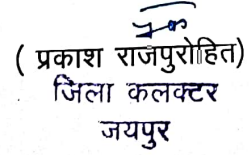 ( प्रकाश राजपुरोहित)
जिला कलक्टर
जयपुर